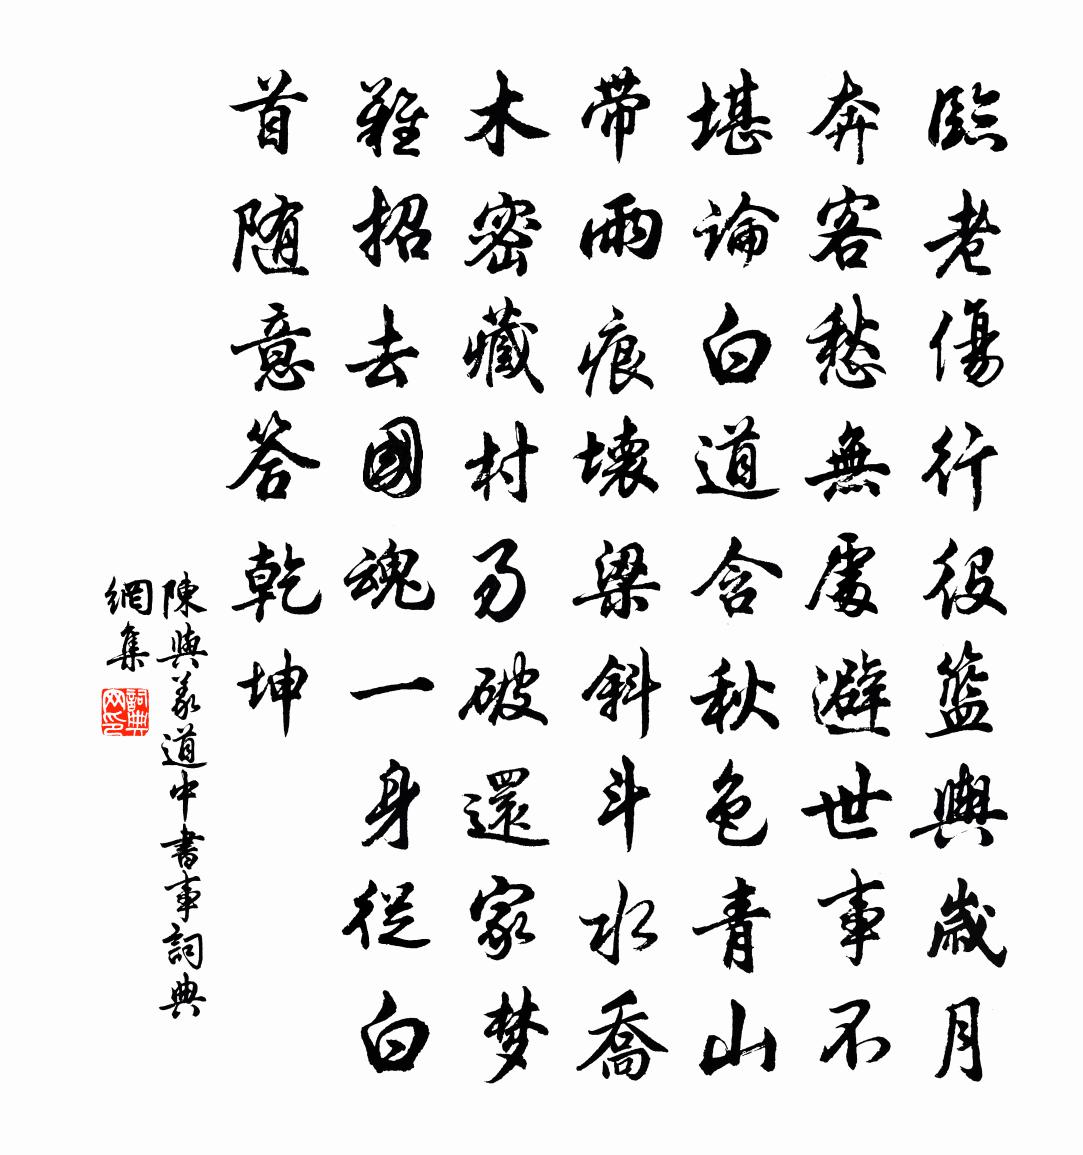 臨老傷行役籃輿歲月
奔客愁無處避世事不
堪論白道含秋色青山
帶雨痕壞梁斜斗水喬
木密藏村易破還家梦
難招去國魂一身從白
首随意答乾坤
陳與義道中書事詞典
網集